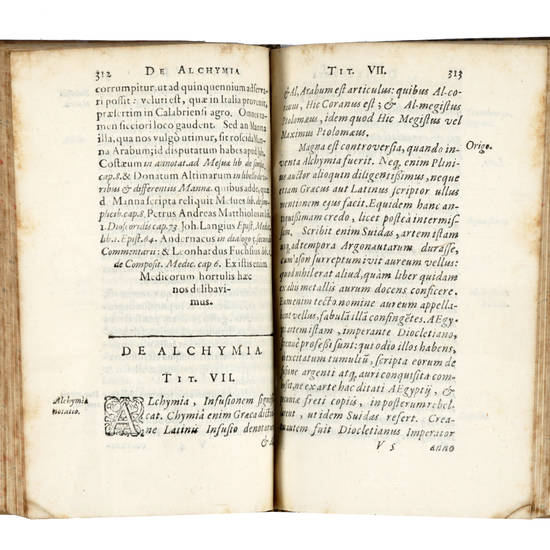 312 DE ALCHYMIA
corrumpitur, ut ad quinquennium adserva-
ri possit: veluti est, quæ in Italia provenit,
præsertim in Calabriensi agro. Omnes ta-
men sicciori loco gaudent. Sed an Manna
illa, qua nos vulgò utimur, sit roscidū Man-
na Arabum; id disputatum habes apud Joh.
Costæum in annotat. ad Mesuæ lib. de simpl.
cap. 8. & Donatum Altimarum in libello de
ribus & differentiis Manna. quibus adde, quæ
d. Manna scripta reliquit Mesues lib. de sim-
plicib. cap. 8. Petrus Andreas Matthiolus lib.
1. Dioscoridis cap. 73. Joh. Langius Epist. Med.
lib. 1. Epist. 64. Andernacus in dialogo 7.
Commentarii: & Leonhardus Fuchsius lib.
de Composit. Medic. cap. 6. Ex istis enim
Medicorum hortulis hæc
nos delibavi-
mus.
DE ALCHYMIA.
TIT. VII.
Alchymia
notatio.
ALchymia, Infusionem signifi-
cat. Chymia enim Græca dictio
ne Latinis Infusio denotatur
TIT. VII. 313
& Al, Arabum est articulus: quibus Al-co-
ranus, Hic Coranus est; & Al-megistus
Ptolomæus, idem quod Hic Megistus vel
Maximus Ptolomæus.
Magna est controversia, quando in-
Origo.
venta Alchymia fuerit. Neq, enim Plini-
us auctor alioquin diligentissimus, neque
etiam Græcus aut Latinus scriptor ullus
mentionem ejus facit. Equidem hanc an-
tiquissimam credo, licet posteà intermis-
sam. Scribit enim Suidas, artem istam
usq, ad tempora Argonautarum durasse,
cum Iason surreptum ivit aureum vellus:
quod nihil erat aliud, quàm liber quidam
ex aliis metallis aurum docens conficere.
Eum enim tecto nomine aureum appella-
runt vellus, fabulā illā confingētes. AEgy-
artem istam, imperante Diocletiano,
professi sunt: quot odio illos habens,
excutatum tumultū, scripta eorum de
argenti atq, auri conquisita com-
ne ex arte hac ditati AEgyptij, &
freti copiis, in posterum rebel-
larent, ut idem Suidas refert. Crea-
tus autem fuit Diocletianus Imperator
V 5 anno